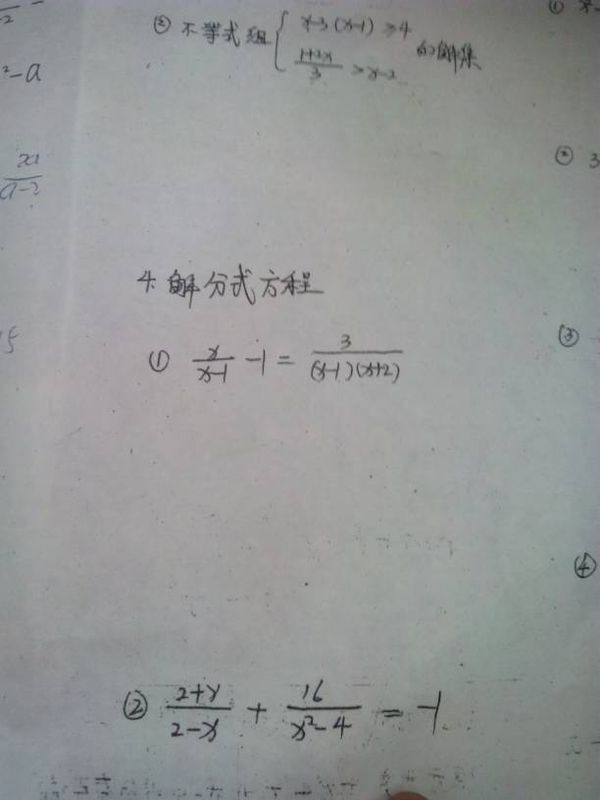 ③ 不等式组 { x-3(x-1) ≥ 4
(1+2x)/3 > x-2 的解集
4. 解分式方程
① x/(x-1) - 1 = 3/((x-1)(x+2))
② (2+x)/(2-x) + 16/(x²-4) = -1
²-a
2a/(a-2)
5
①
②
3
③
④